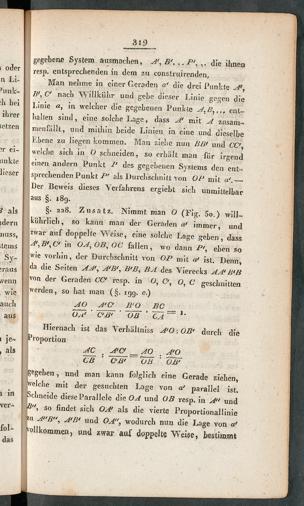 319
gegebene System ausmachen, A', B'. . . P'. . . die ihnen
resp. entsprechenden in dem zu construirenden.
Man nehme in einer Geraden a' die drei Punkte A',
B', C' nach Willkühr und gebe dieser Linie gegen die
Linie a, in welcher die gegebenen Punkte A, B, .. ent-
halten sind, eine solche Lage, dass A' mit A zusam-
menfällt, und mithin beide Linien in eine und dieselbe
Ebene zu liegen kommen. Man ziehe nun BB' und CC',
welche sich in O schneiden, so erhält man für irgend
einen andern Punkt P des gegebenen Systems den ent-
sprechenden Punkt P' als Durchschnitt von OP mit a'. —
Der Beweis dieses Verfahrens ergiebt sich unmittelbar
aus §. 189.
§. 228. Zusatz. Nimmt man O (Fig. 50.) will-
kührlich, so kann man der Geraden a' immer, und
zwar auf doppelte Weise, eine solche Lage geben, dass
A', B', C' in OA, OB, OC fallen, wo dann P', eben so
wie vorhin, der Durchschnitt von OP mit a' ist. Denn,
da die Seiten AA', A'B', B'B, BA des Vierecks AA'B'B
von der Geraden CC' resp. in O, C', O, C geschnitten
werden, so hat man (§. 199. c.)
AO/OA' · A'C'/C'B' · B'O/OB · BC/CA = 1.
Hiernach ist das Verhältniss A'O : OB' durch die
Proportion
AC/CB : A'C'/C'B' = AO/OB : A'O/OB'
gegeben, und man kann folglich eine Gerade ziehen,
welche mit der gesuchten Lage von a' parallel ist.
Schneide diese Parallele die OA und OB resp. in A'' und
B'', so findet sich OA' als die vierte Proportionallinie
zu A''B'', A'B' und OA'', wodurch nun die Lage von a'
vollkommen, und zwar auf doppelte Weise, bestimmt